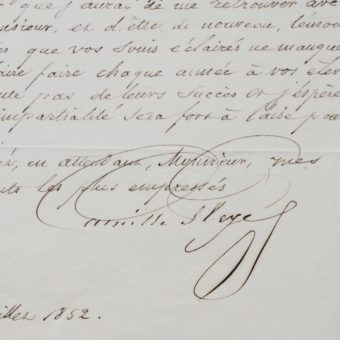 que j'aurai de me retrouver ave
nsieur, et d'être de nouveau, temoi
ès que vos soins éclairés ne manque
ire faire chaque année à vos élèv
ute pas de leurs succès et j'espère
impartialité sera fort à l'aise po
en attendant, Monsieur, mes
nts les plus empressés
Camille Pleyel
illet 1852.